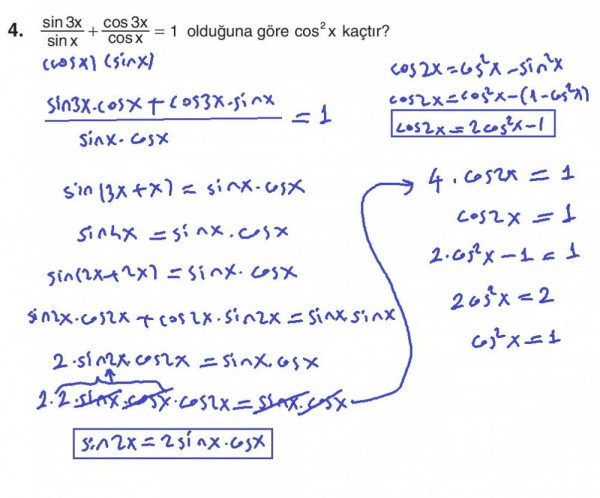 4. sin 3x/sin x + cos 3x/cos x = 1 olduğuna göre cos²x kaçtır?
(cosx) (sinx)
sin3x·cosx + cos3x·sinx / sinx·cosx = 1
sin(3x+x) = sinx·cosx
sin4x = sinx·cosx
sin(2x+2x) = sinx·cosx
sin2x·cos2x + cos2x·sin2x = sinx sinx
2·sin2x cos2x = sinx·cosx
2·2·sinx·cosx·cos2x = sinx·cosx
sin2x = 2sinx·cosx
cos2x = cos²x - sin²x
cos2x = cos²x - (1-cos²x)
cos2x = 2cos²x-1
4·cos2x = 1
cos2x = 1
2·cos²x - 1 = 1
2cos²x = 2
cos²x = 1